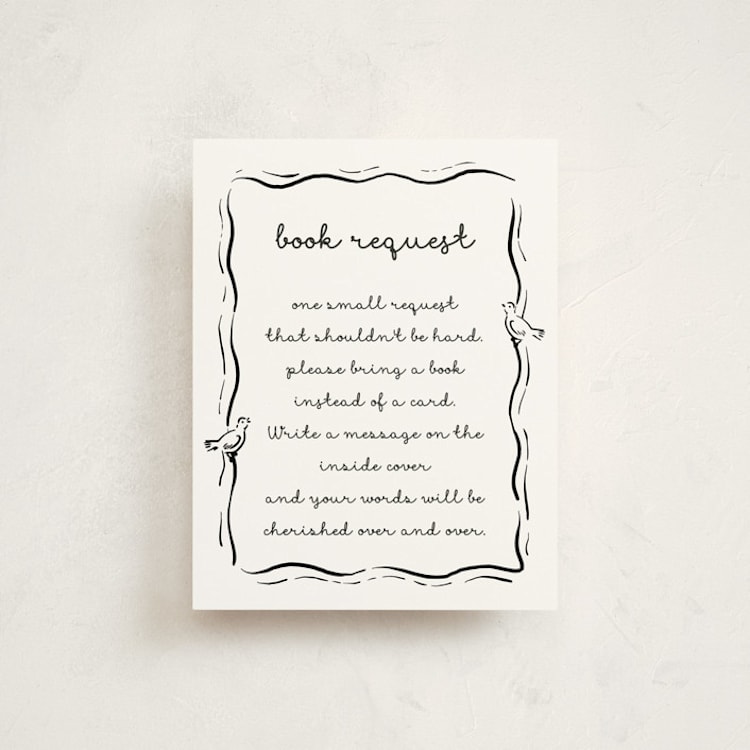 book request
one small request
that shouldn't be hard.
please bring a book
instead of a card.
Write a message on the
inside cover
and your words will be
cherished over and over.